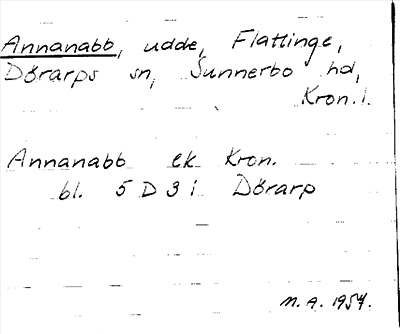 Annanabb, udde, Flattinge,
Dörarps sn, Sunnerbo hd,
Kron. l.
Annanabb ek Kron.
bl. 5 D 3 i Dörarp
M. A. 1957.